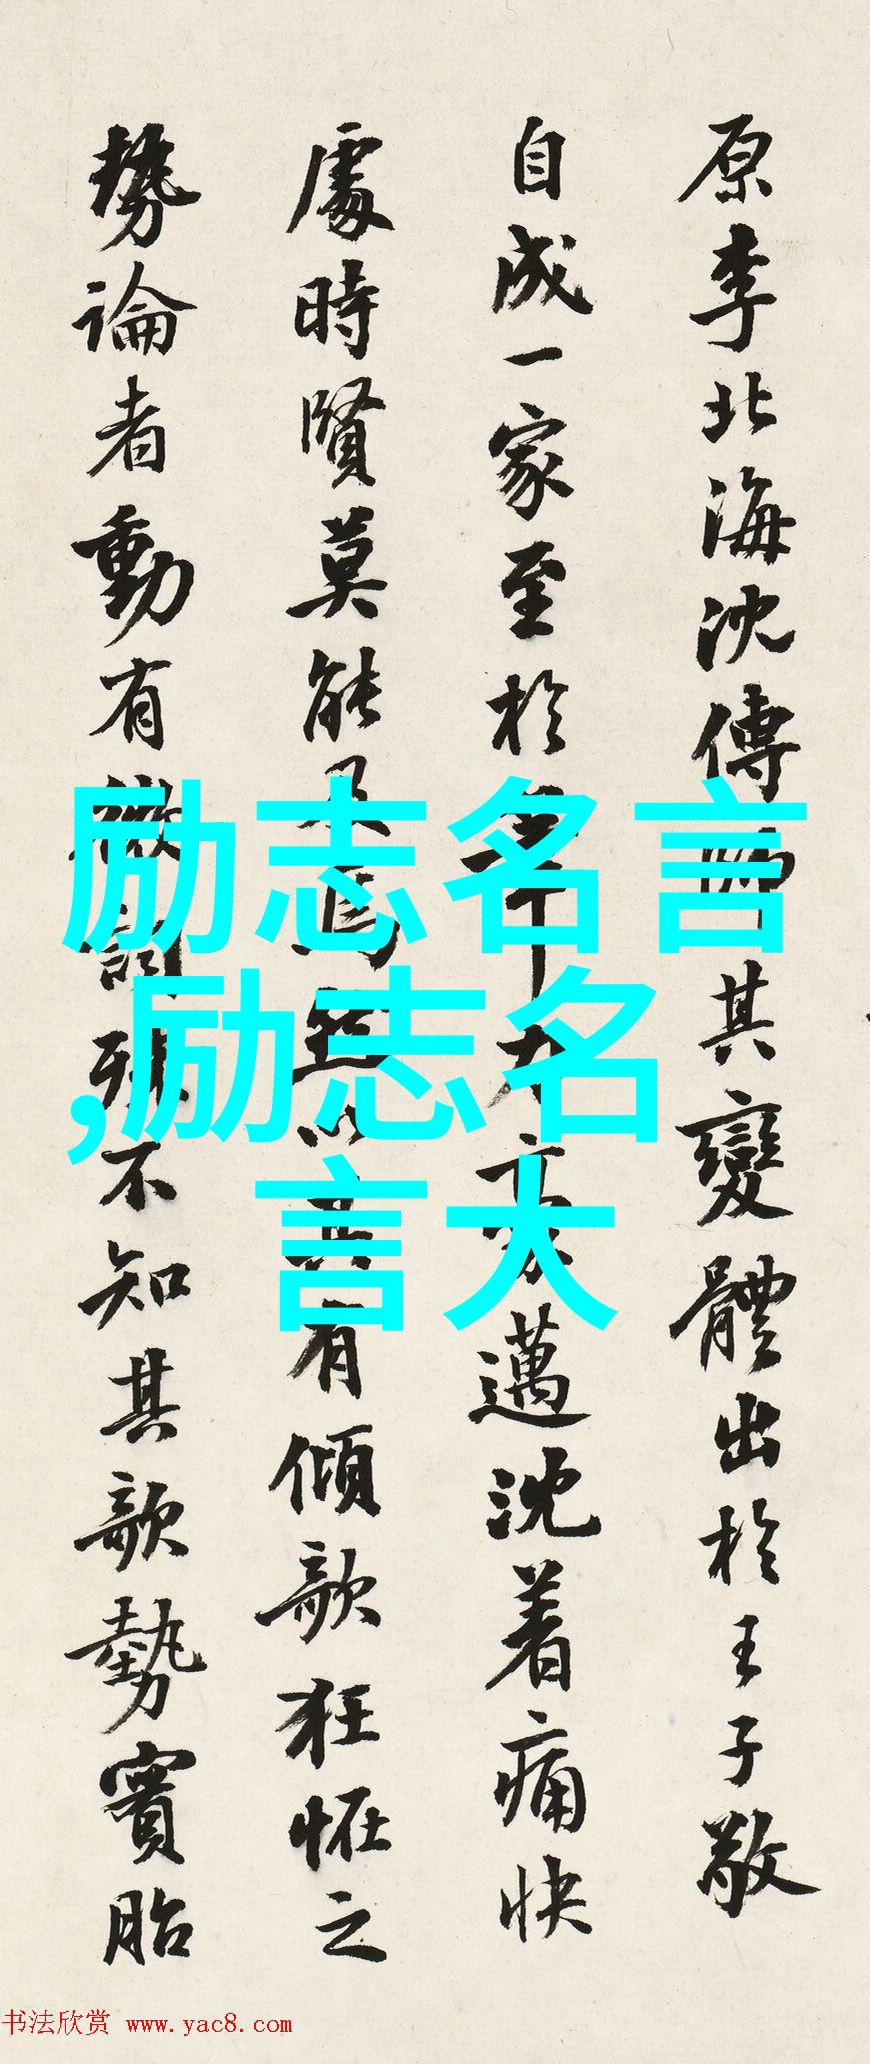 原李北海沈傳師其變體出於王子敬
自成一家至於 邁沈着痛快
處時賢莫能 有傾欹狂怪之
勢論者動有微詞殊不知其欹勢實胎
励志名言
,励志名
言大
书法欣赏 www.yac8.com